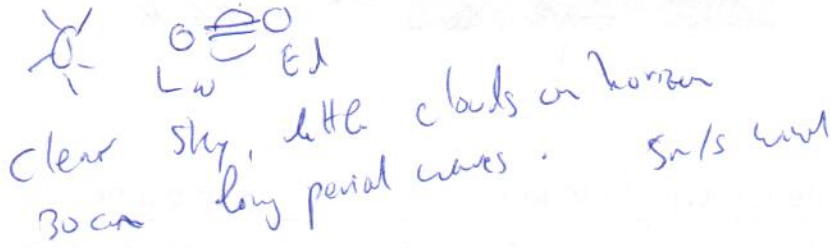 Lw Ed
Clear sky, little clouds on horizon
30cm long period waves. 5m/s wind